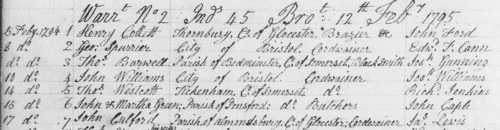 Warrt. No 2 Ind 45 Brot. 12th Feby 1795
5 Feby. 1794 1 Henry Collett Thornbury, C. of Glocester Brazier & John Ford
8 do. 2 Geo. Spurrier City of Bristol Cordwainer Edwd. T. Cann
do do. 3 Thos. Barwell Parish of Bedminster, C. of Somerset, Black Smith Jos. Gunning
10 do. 4 John Williams City of Bristol. Cordwainer Jos. Williams
14 do 5 Thos. Westcott Tickenham, C. of Somerset, do Richd. Jenkins
16 do 6 John & Martha Green; Parish of Butchers John Cople
17 do. 7 John Parish of Almondsbury, C. of Glocester; Cordwainer Jas. Lewis